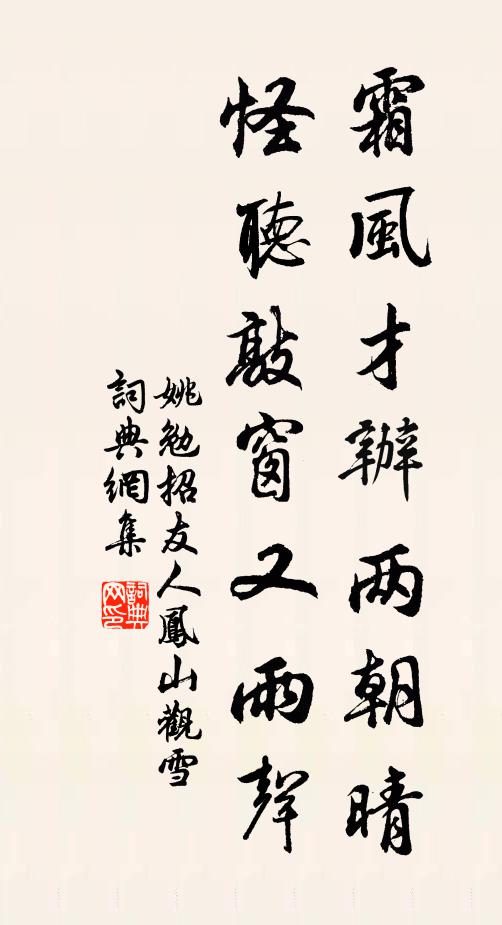 霜風才辦两朝晴
怪聽敲窗又雨聲
姚勉招友人鳳山觀雪
詞典網集
詞典网印